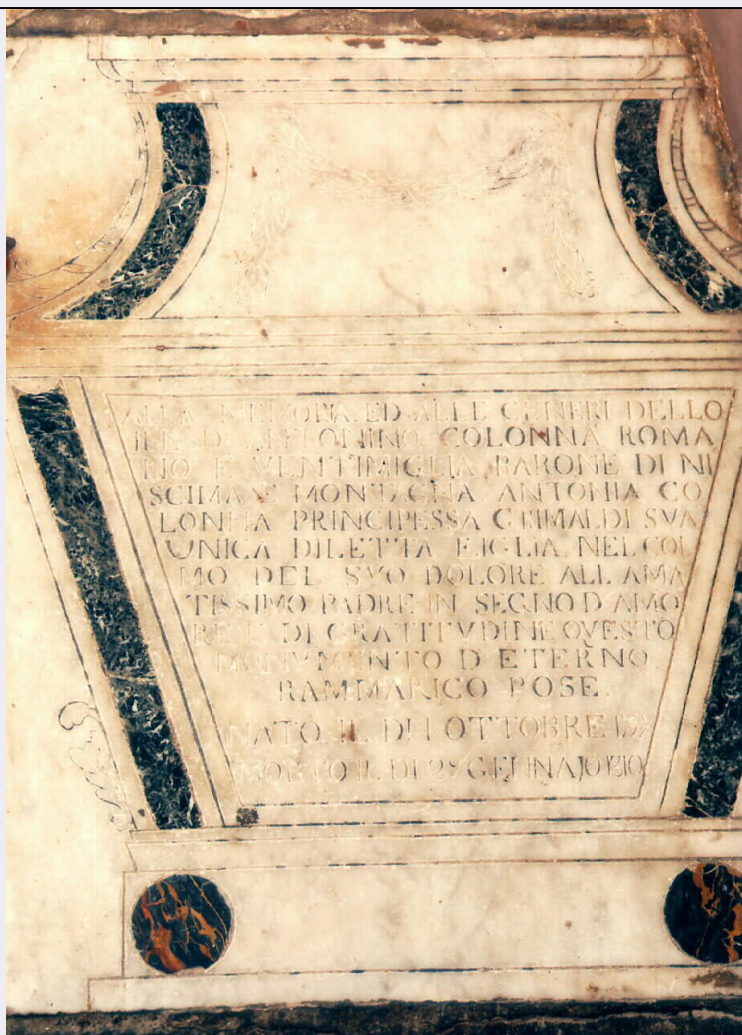 ALLA MEMORIA ED ALLE CENERI DELLO
ILL D ANTONINO COLONNA ROMA
NO E VENTIMIGLIA BARONE DI NI
SCIMA E MONTAGNA ANTONIA CO
LONNA PRINCIPESSA GRIMALDI SVA
VNICA DILETTA FIGLIA NEL COL
MO DEL SVO DOLORE ALL AMA
TISSIMO PADRE IN SEGNO D AMO
RE E DI GRATITVDINE QVESTO
MONVMENTO D ETERNO
RAMMARICO POSE.
NATO IL DI 1 OTTOBRE
MORTO IL DI GENNAJO